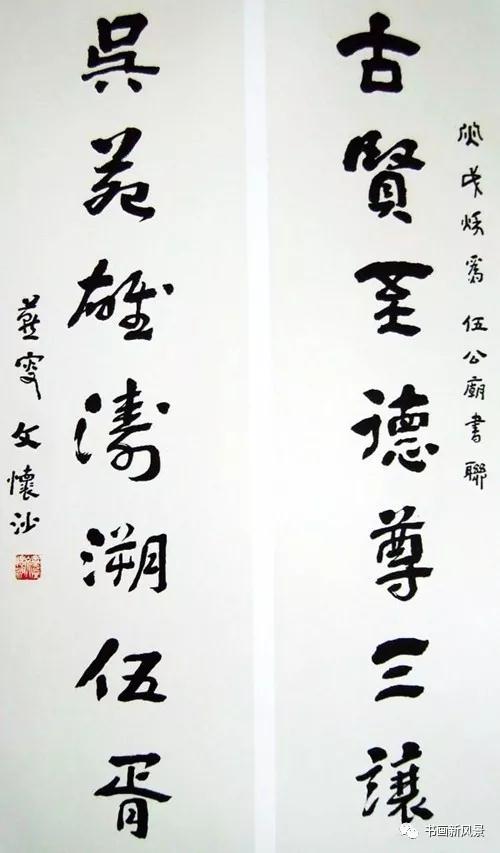 戌秋爲伍公廟書聯
古賢至德尊三讓
吳苑雄濤溯伍胥
燕叟文懷沙
书画新风景